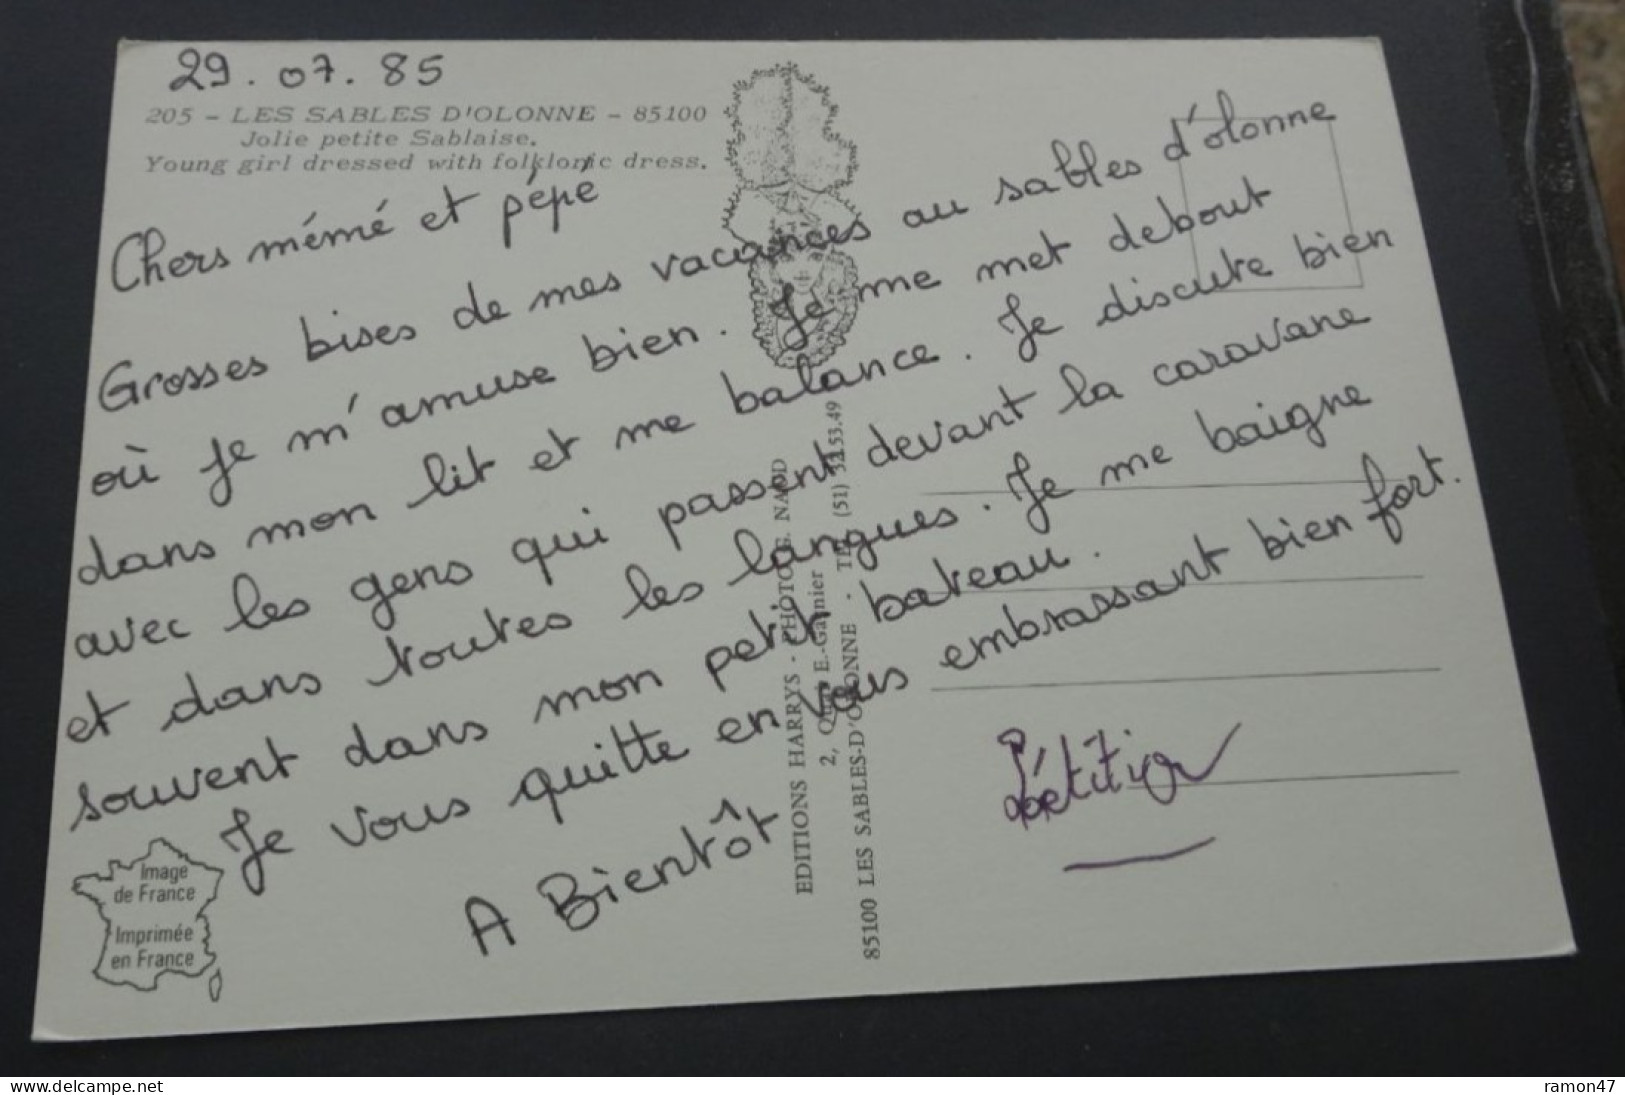 29.07.85
205 - LES SABLES D'OLONNE - 85100
Jolie petite Sablaise.
Young girl dressed with folkloric dress.
Chers mémé et pépé
Grosses bises de mes vacances au sables d'olonne
où je m'amuse bien. Je me met debout
dans mon lit et me balance. Je discute bien
avec les gens qui passent devant la caravane
et dans toutes les langues. Je me baigne
souvent dans mon petit bateau.
Je vous quitte en vous embrassant bien fort.
A Bientôt
EDITIONS HARRYS - PHOTOG. NAUD
2, Quai E.-Garnier
85100 LES SABLES-D'OLONNE - TEL. (51) 32.53.49
Image
de France
Imprimée
en France
www.delcampe.net
ramon47